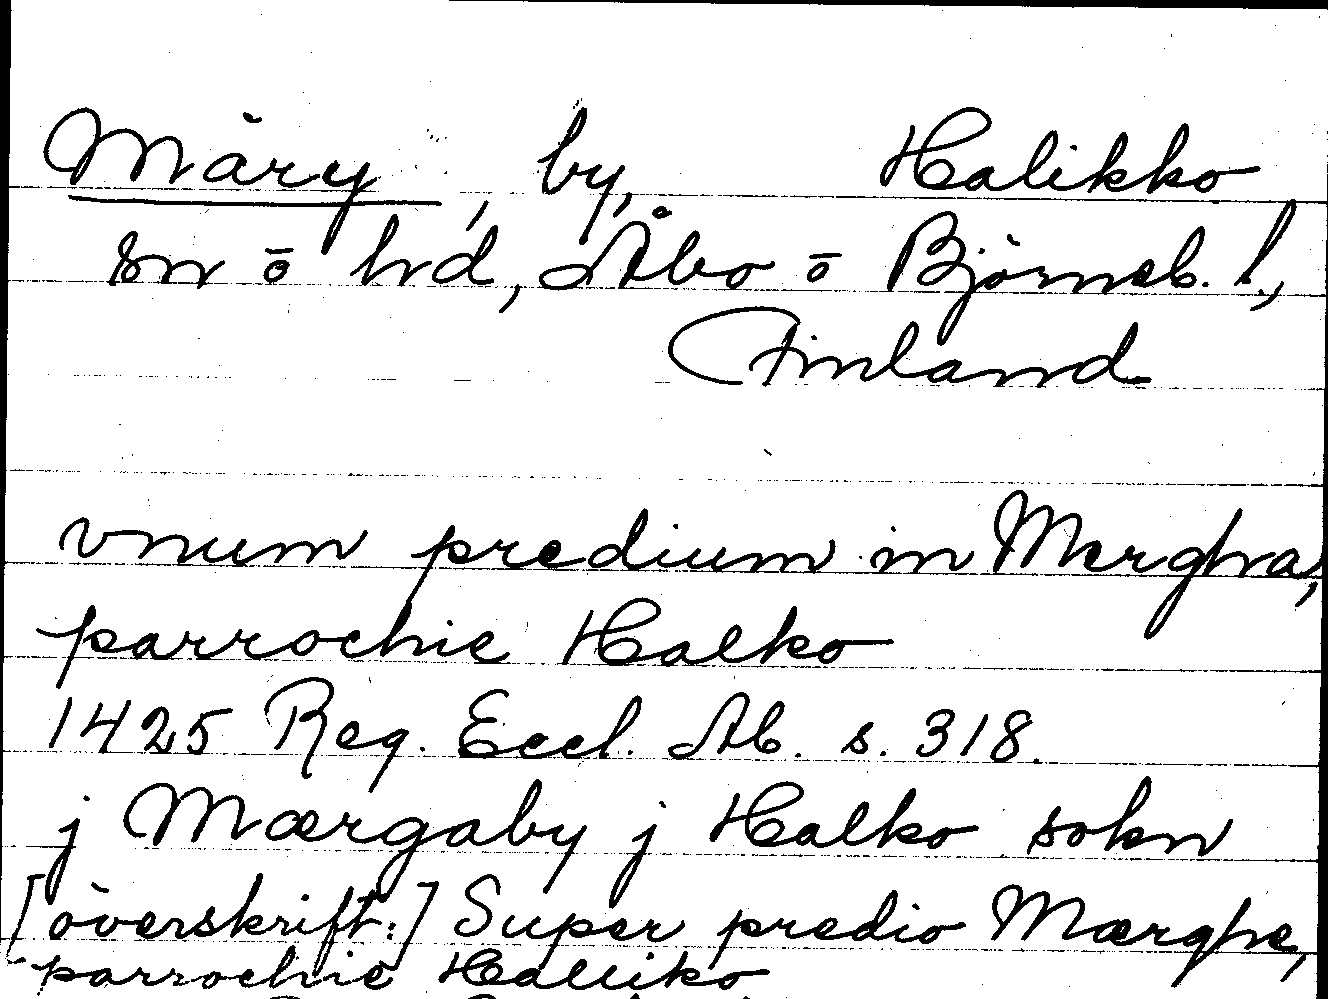 Märy, by, Halikko
sn ō hd, Åbo ō Björneb. l.,
Finland
vnum predium in Mergha,
parrochie Halko
1425 Reg. Eccl. Ab. s. 318.
j Mærgaby j Halko sokn
[överskrift:] Super predio Mærghe,
parrochie Halliko